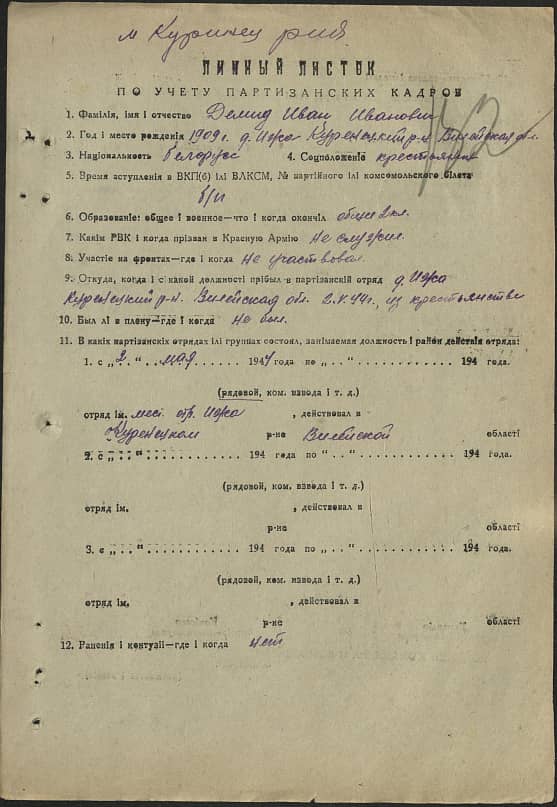 м Куринец р-на
ЛИЧНЫЙ ЛИСТОК
ПО УЧЕТУ ПАРТИЗАНСКИХ КАДРОВ
1. Фамілія, імя і отчество Демид Иван Иванович
2. Год і место рождения 1909 г. д. Ижа Куренецкий р-н Вилейская обл.
3. Національность белорус 4. Соцположеніе крестьянин
5. Время вступленія в ВКП(б) ілі ВЛКСМ, № партійного ілі комсомольского білета
б/п
6. Образованіе: общее і военное—что і когда окончіл общ. 2 кл.
7. Какім РВК і когда прізван в Красную Армію не служил.
8. Участіе на фронтах—где і когда не участвовал.
9. Откуда, когда і с какой должності прібыл в партізанскій отряд д. Ижа
Куренецкий р-н. Вилейская обл. 2.V.44 г., из крестьянства
10. Был лі в плену—где і когда не был.
11. В какіх партізанскіх отрядах ілі группах состоял, занімаемая должность і район действія отряда:
1. с „2.." .. мая 1944 года по „..".............. 194 года.
(рядовой, ком. взвода і т. д.)
отряд ім. мест. отр. Ижа , действовал в
Куренецком р-не Вилейской області
2. с „.."............. 194 года по „..".............. 194 года.
(рядовой, ком. взвода і т. д.)
отряд ім. , действовал в
р-не області
3. с „.."............. 194 года по „..".............. 194 года.
(рядовой, ком. взвода і т. д.)
отряд ім. , действовал в
р-не області
12. Раненія і контузіі—где і когда нет